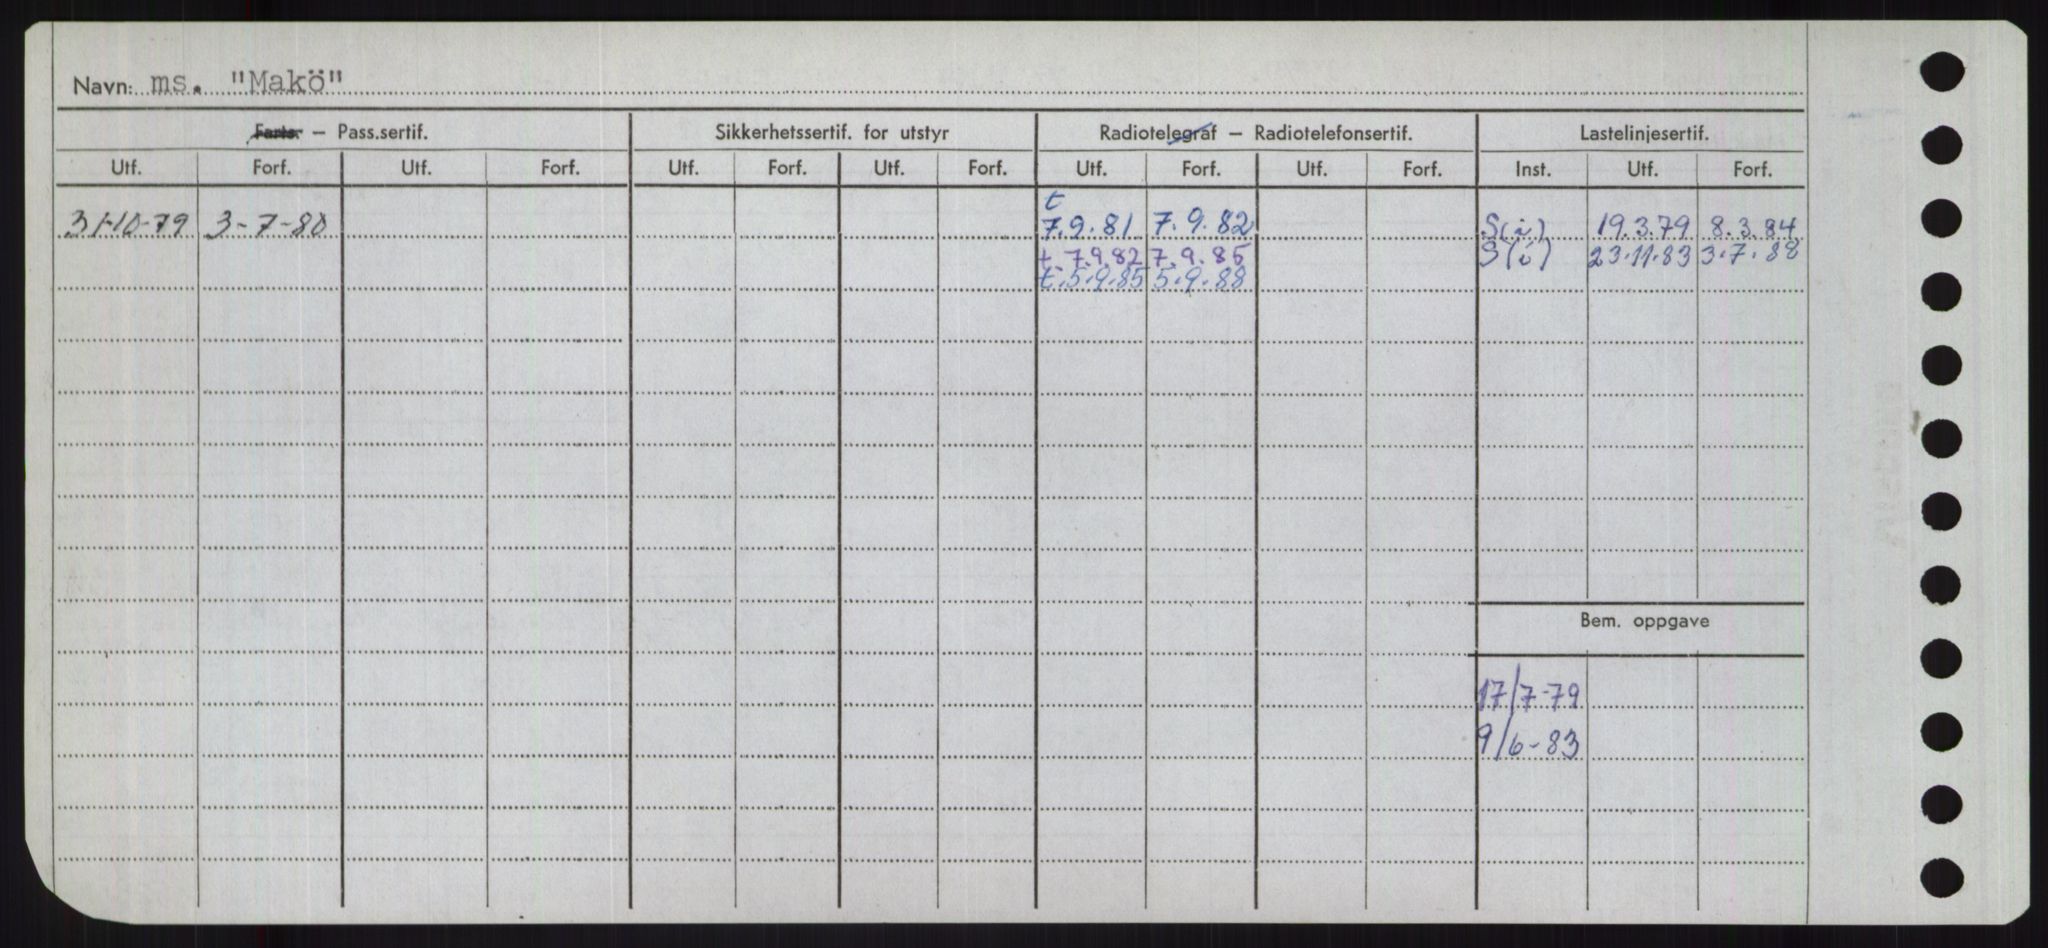 Navn: ms. "Makö"
Farts. – Pass.sertif. Sikkerhetssertif. for utstyr Radiotelegraf – Radiotelefonsertif. Lastelinjesertif.
Utf. Forf. Utf. Forf. Utf. Forf. Utf. Forf. Utf. Forf. Utf. Forf. Inst. Utf. Forf.
t
31-10-79 3-7-80 7.9.81 7.9.82 S(i) 19.3.79 8.3.84
t. 7.9.82 7.9.85 S(i) 23.11.83 3.7.88
t. 5.9.85 5.9.88
Bem. oppgave
17/7-79
9/6-83